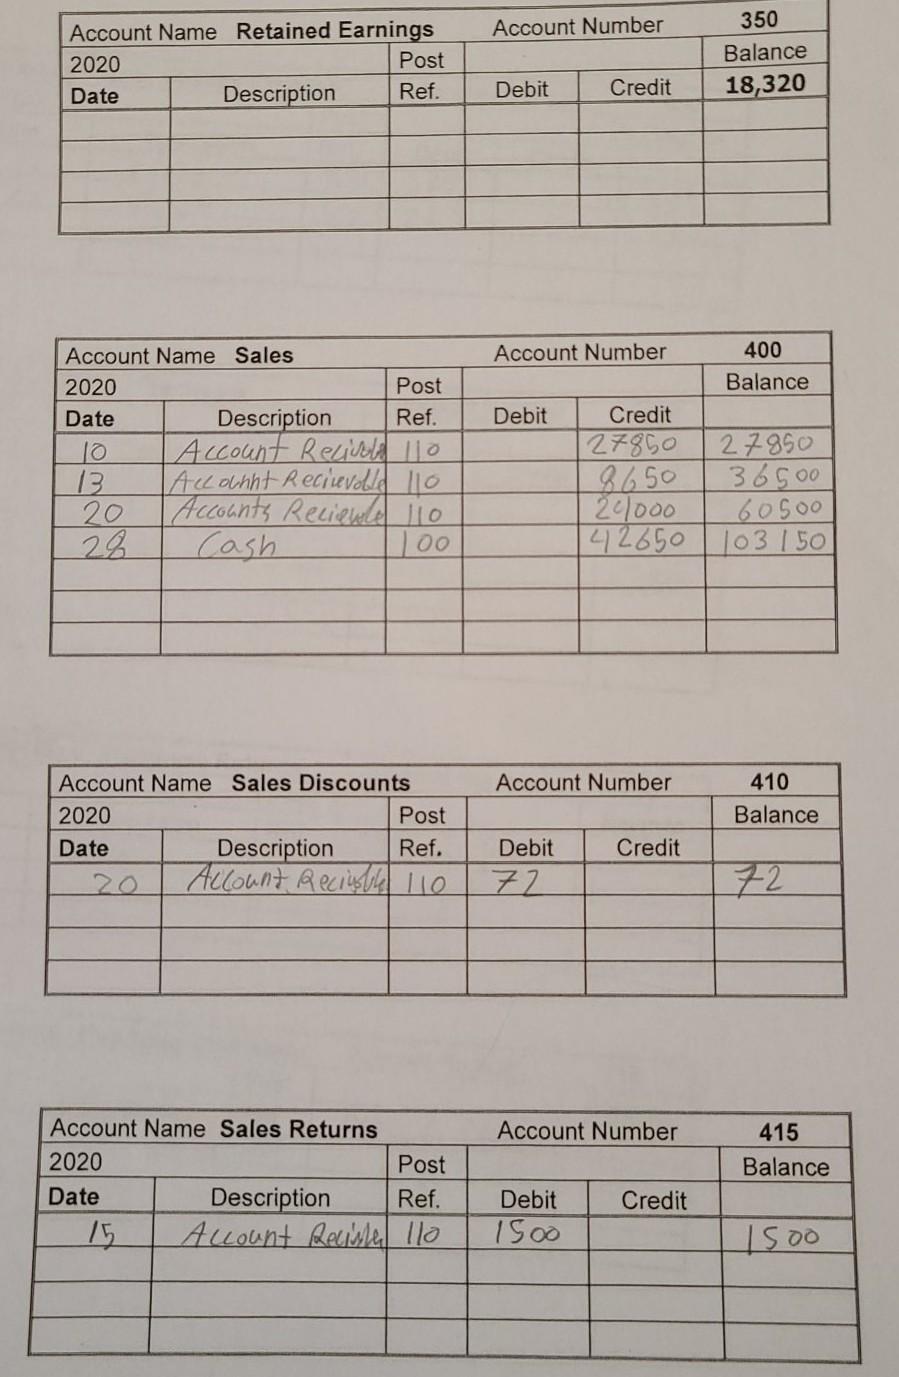 Account Name Retained Earnings Account Number 350
2020 Post Balance
Date Description Ref. Debit Credit 18,320
Account Name Sales Account Number 400
2020 Post Balance
Date Description Ref. Debit Credit
10 Account 110 27850 27850
13 110 8650 36500
20 Accounts 110 24000 60500
28 Cash 100 42650 103150
Account Name Sales Discounts Account Number 410
2020 Post Balance
Date Description Ref. Debit Credit
20 Account 110 72 72
Account Name Sales Returns Account Number 415
2020 Post Balance
Date Description Ref. Debit Credit
15 Account 110 1500 1500